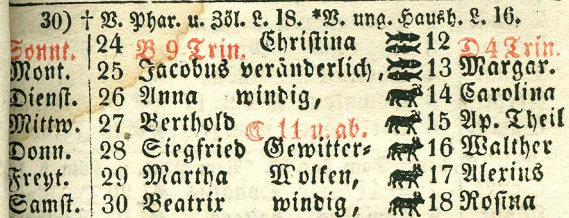 30) † V. Phar. u. Zöl. L. 18. *V. ung. Haush. L. 16.
Sonnt. 24 B 9 Trin. Christina 12 D 4 Trin.
Mont. 25 Jacobus veränderlich, 13 Margar.
Dienst. 26 Anna windig, 14 Carolina
Mittw. 27 Berthold C 11 u. ab. 15 Ap. Theil
Donn. 28 Siegfried Gewitter- 16 Walther
Freyt. 29 Martha Wolken, 17 Alexius
Samst. 30 Beatrix windig, 18 Rosina